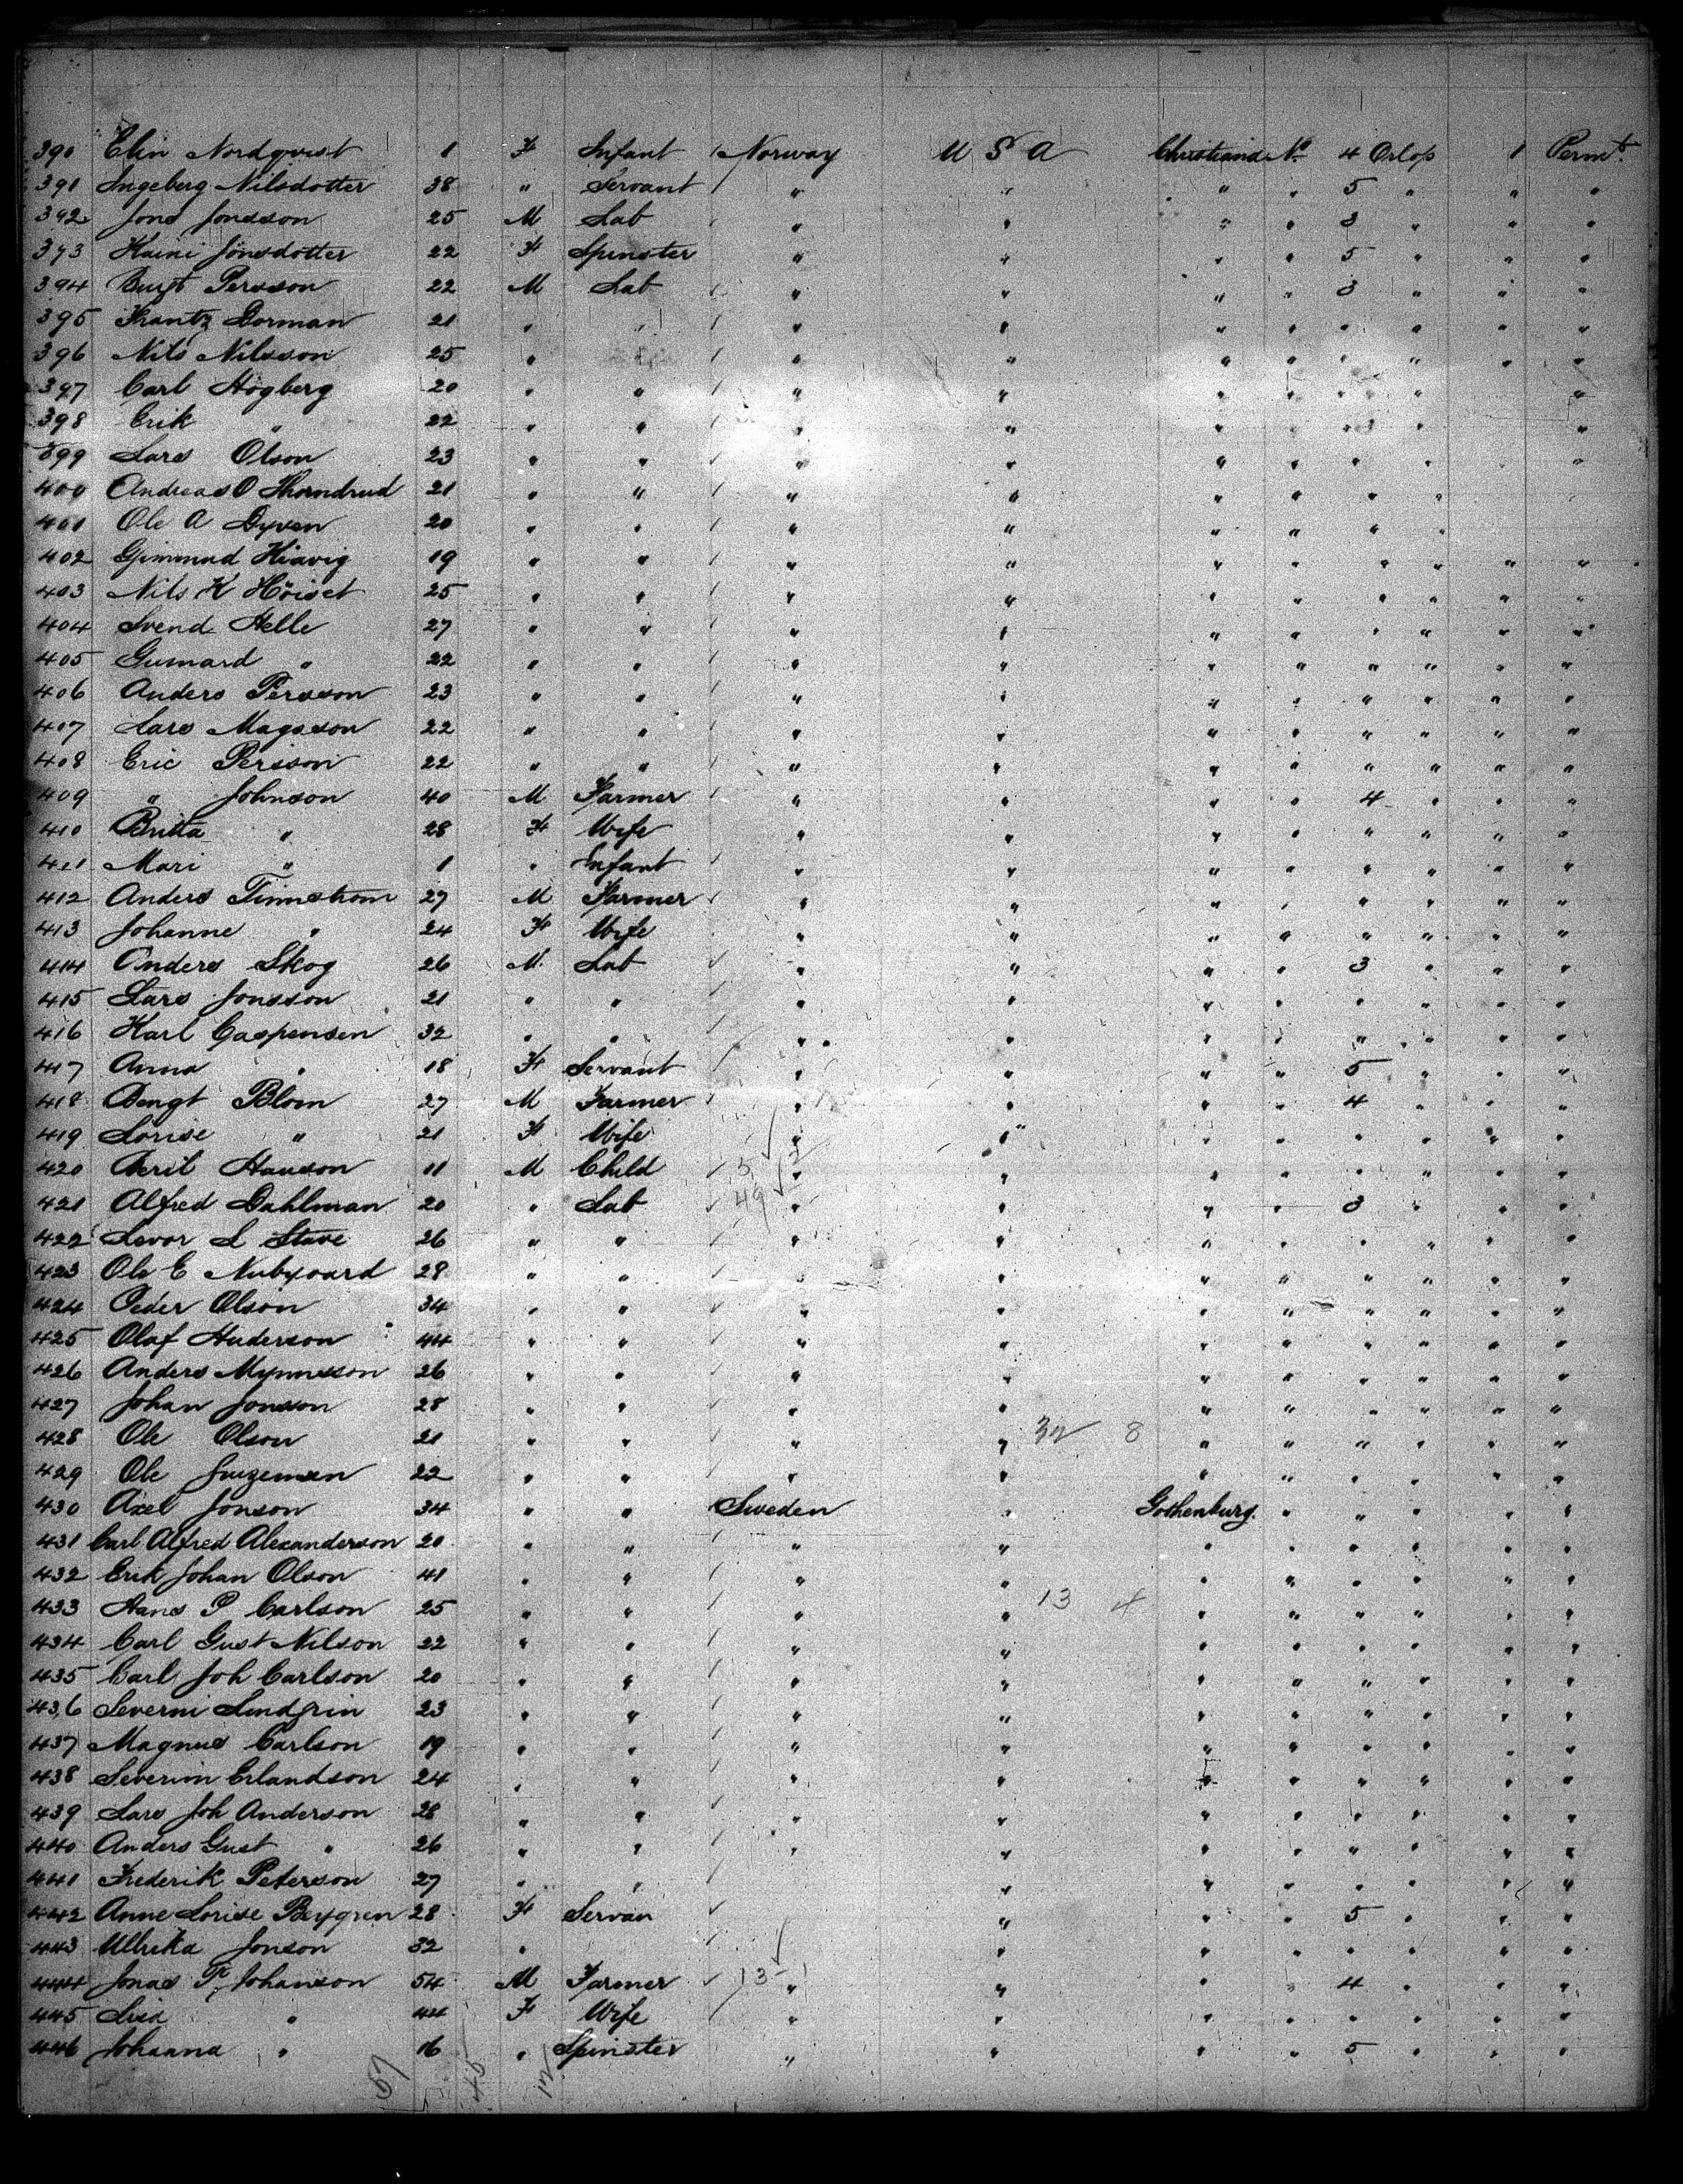 390 Elin Nordqvist 1 F Infant Norway U S A Christiania No 4 Orlop 1 Permt.
391 Ingeberg Nilsdotter 38 " Servant " " " " 5 " " "
392 Jons Jonsson 25 M Lab " " " " 3 " " "
393 Jönsdotter 22 F Spinster " " " " 5 " " "
394 Bengt Persson 22 M Lab " " " " 3 " " "
395 Frantz Dorman 21 " " " " " " " " " "
396 Nils Nilsson 25 " " " " " " " " "
397 Carl Högberg 20 " " " " " " " " "
398 Erik " 22 " " " " " " " "
399 Lars Olson 23 " " " " " " " " "
400 Andreas O Thorndrud 21 " " " " " " " "
401 Ole A Dyven 20 " " " " " " "
402 Gjimmund Hiavig 19 " " " " " " " " " "
403 Nils K Höiset 25 " " " " " " " " " "
404 Svend Helle 27 " " " " " " " " " "
405 Gunnard " 22 " " " " " " " " " "
406 Anders Persson 23 " " " " " " " " "
407 Lars Magsson 22 " " " " " " " " " "
408 Eric Persson 22 " " " " " " " " " "
409 " Johnson 40 M Farmer " " " " 4 " " "
410 Britta " 28 F Wife " " " " " " " "
411 Mari " 1 " Infant " " " " " " " "
412 Anders Timnstrom 27 M Farmer " " " " " " " "
413 Johanne " 24 F Wife " " " " " " " "
414 Anders Skog 26 M Lab " " " " 3 " " "
415 Lars Jonsson 21 " " " " " " " " " "
416 Karl Caspensen 32 " " " " " " " " " "
417 Anna " 18 F Servant " " " " 5 " " "
418 Bengt Blom 27 M Farmer " " " " 4 " " "
419 Lovise " 21 F Wife " " " " " " " "
420 Hanson 11 M Child 5 " " " " " " " "
421 Alfred Dahlman 20 " Lab 49 " " " " 3 " " "
422 Levor L Stave 26 " " " " " " " " " "
423 Ole E 28 " " " " " " " " " "
424 Peder Olson 34 " " " " " " " " " "
425 Olaf Anderson 44 " " " " " " " " " "
426 Anders Mynnsson 26 " " " " " " " " " "
427 Johan Jonsson 28 " " " " " " " " " "
428 Ole Olson 21 " " " " 32 8 " " " " " "
429 Ole 22 " " " " " " " " " "
430 Axel Jonson 34 " " Sweden " Gothenburg " " " " "
431 Carl Alfred Alexanderson 20 " " " " " " " " " "
432 Erik Johan Olson 41 " " " " " " " " " "
433 Hans P Carlson 25 " " " " 13 4 " " " " " "
434 Carl Gust Nilson 22 " " " " " " " " " "
435 Carl Joh Carlson 20 " " " " " " " " " "
436 Severni Lindgrin 23 " " " " " " " " " "
437 Magnus Carlson 19 " " " " " " " " " "
438 Severin Erlandson 24 " " " " " " " " " "
439 Lars Joh Anderson 28 " " " " " " " " " "
440 Anders Gust " 26 " " " " " " " " "
441 Frederik Peterson 27 " " " " " " " " "
442 Anne Lovise Bergren 28 F Servan " " " 5 " " "
443 Ulhrika Jonson 32 " " " " " " " "
444 Jonas P. Johanson 54 M Farmer 13 " " " " 4 " " "
445 Lisa " 44 F Wife " " " " " " " "
446 Johanna " 16 " Spinster " " " " 5 " " "
57 45 12